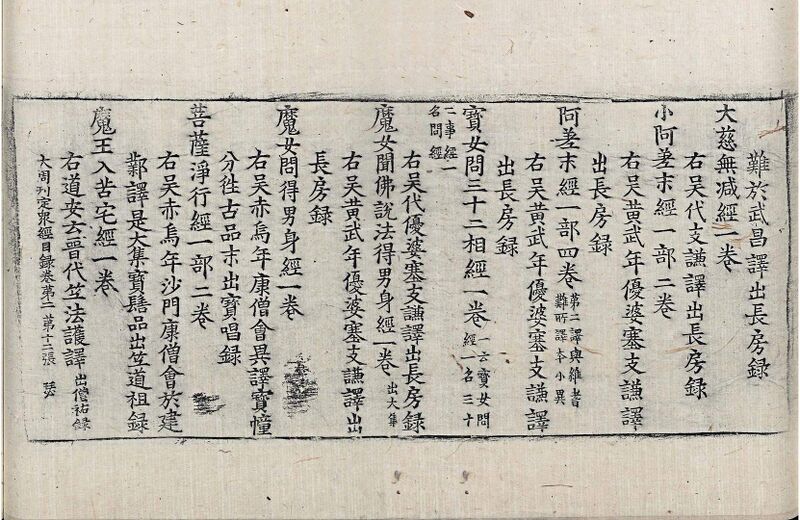 難於武昌譯出長房録
大慈無減經一卷
右吴代支謙譯出長房録
小阿差末經一部二卷
右吴黄武年優婆塞支謙譯
出長房録
阿差末經一部四卷第二譯與維者難所譯本小異
右吴黄武年優婆塞支謙譯
出長房録
寶女問三十二相經一卷一云寶女問經一名三十
二事經一名問經
右吴代優婆塞支謙譯出長房録
魔女聞佛說法得男身經一卷出大集
右吴黄武年優婆塞支謙譯出
長房録
魔女問得男身經一卷
右吴赤烏年康僧會異譯寶幢
分徃古品末出寶唱録
菩薩淨行經一部二卷
右吴赤烏年沙門康僧會於建
鄴譯是大集寶髻品出笁道祖録
魔王入苦宅經一卷
右道安云晋代笁法護譯出僧祐録
大周刊定衆經目録卷第二 第十二張 瑟